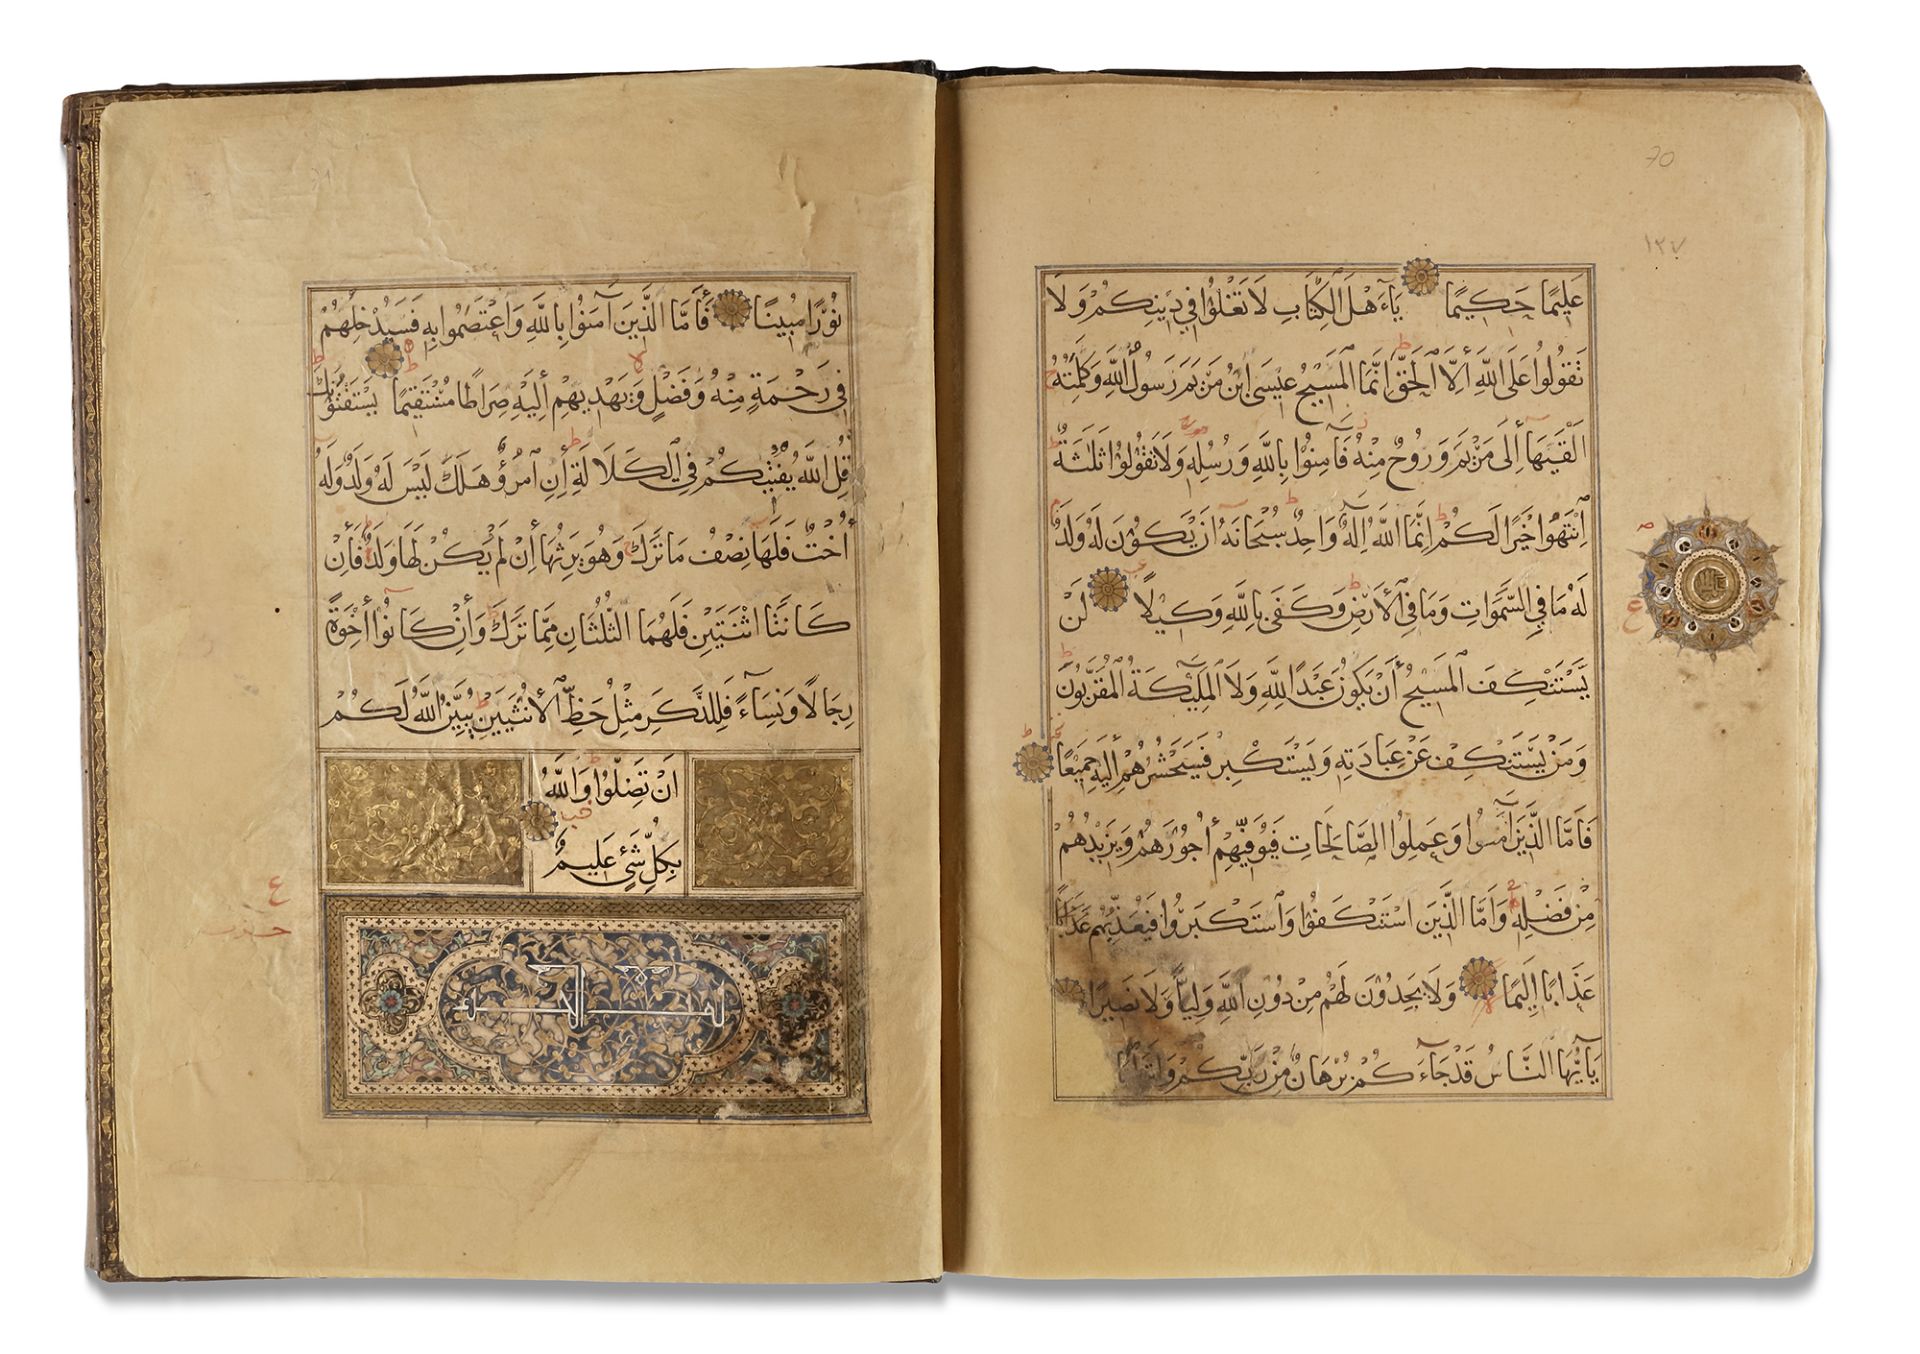 عَلِيمًا حَكِيمًا يَآءَهْلَ الْكِتَابِ لَا تَغْلُوا فِي دِينِكُمْ وَلَا
تَقُولُوا عَلَى اللَّهِ إِلَّا الْحَقَّ إِنَّمَا الْمَسِيحُ عِيسَى ابْنُ مَرْيَمَ رَسُولُ اللَّهِ وَكَلِمَتُهُ
أَلْقَيهَا إِلَى مَرْيَمَ وَرُوحٌ مِنْهُ فَآمِنُوا بِاللَّهِ وَرُسُلِهِ وَلَا تَقُولُوا ثَلَثَةٌ
انْتَهُوا خَيْرًا لَكُمْ إِنَّمَا اللَّهُ إِلَهٌ وَاحِدٌ سُبْحَانَهُ أَنْ يَكُونَ لَهُ وَلَدٌ
لَهُ مَا فِي السَّمَوَاتِ وَمَا فِي الْأَرْضِ وَكَفَى بِاللَّهِ وَكِيلًا لَنْ
يَسْتَنْكِفَ الْمَسِيحُ أَنْ يَكُونَ عَبْدًا لِلَّهِ وَلَا الْمَلَئِكَةُ الْمُقَرَّبُونَ
وَمَنْ يَسْتَنْكِفْ عَنْ عِبَادَتِهِ وَيَسْتَكْبِرْ فَسَيَحْشُرُهُمْ إِلَيْهِ جَمِيعًا
فَأَمَّا الَّذِينَ آمَنُوا وَعَمِلُوا الصَّالِحَاتِ فَيُوَفِّيهِمْ أُجُورَهُمْ وَيَزِيدُهُمْ
مِنْ فَضْلِهِ وَأَمَّا الَّذِينَ اسْتَنْكَفُوا وَاسْتَكْبَرُوا فَيُعَذِّبُهُمْ عَذَابًا
عَذَابًا أَلِيمًا وَلَا يَجِدُونَ لَهُمْ مِنْ دُونِ اللَّهِ وَلِيًّا وَلَا نَصِيرًا
يَآ أَيُّهَا النَّاسُ قَدْ جَآءَكُمْ بُرْهَانٌ مِنْ رَبِّكُمْ وَأَنْزَلْنَا
70
١٣٧
نُورًا مُبِينًا فَأَمَّا الَّذِينَ آمَنُوا بِاللَّهِ وَاعْتَصَمُوا بِهِ فَسَيُدْخِلُهُمْ
فِي رَحْمَةٍ مِنْهُ وَفَضْلٍ وَيَهْدِيهِمْ إِلَيْهِ صِرَاطًا مُسْتَقِيمًا يَسْتَفْتُونَكَ
قُلِ اللَّهُ يُفْتِيكُمْ فِي الْكَلَالَةِ إِنِ امْرُؤٌ هَلَكَ لَيْسَ لَهُ وَلَدٌ وَلَهُ
أُخْتٌ فَلَهَا نِصْفُ مَا تَرَكَ وَهُوَ يَرِثُهَا إِنْ لَمْ يَكُنْ لَهَا وَلَدٌ فَإِنْ
كَانَتَا اثْنَتَيْنِ فَلَهُمَا الثُّلُثَانِ مِمَّا تَرَكَ وَإِنْ كَانُوا إِخْوَةً
رِجَالًا وَنِسَآءً فَلِلذَّكَرِ مِثْلُ حَظِّ الْأُنْثَيَيْنِ يُبَيِّنُ اللَّهُ لَكُمْ
أَنْ تَضِلُّوا وَاللَّهُ
بِكُلِّ شَيْءٍ عَلِيمٌ
ع
حزب